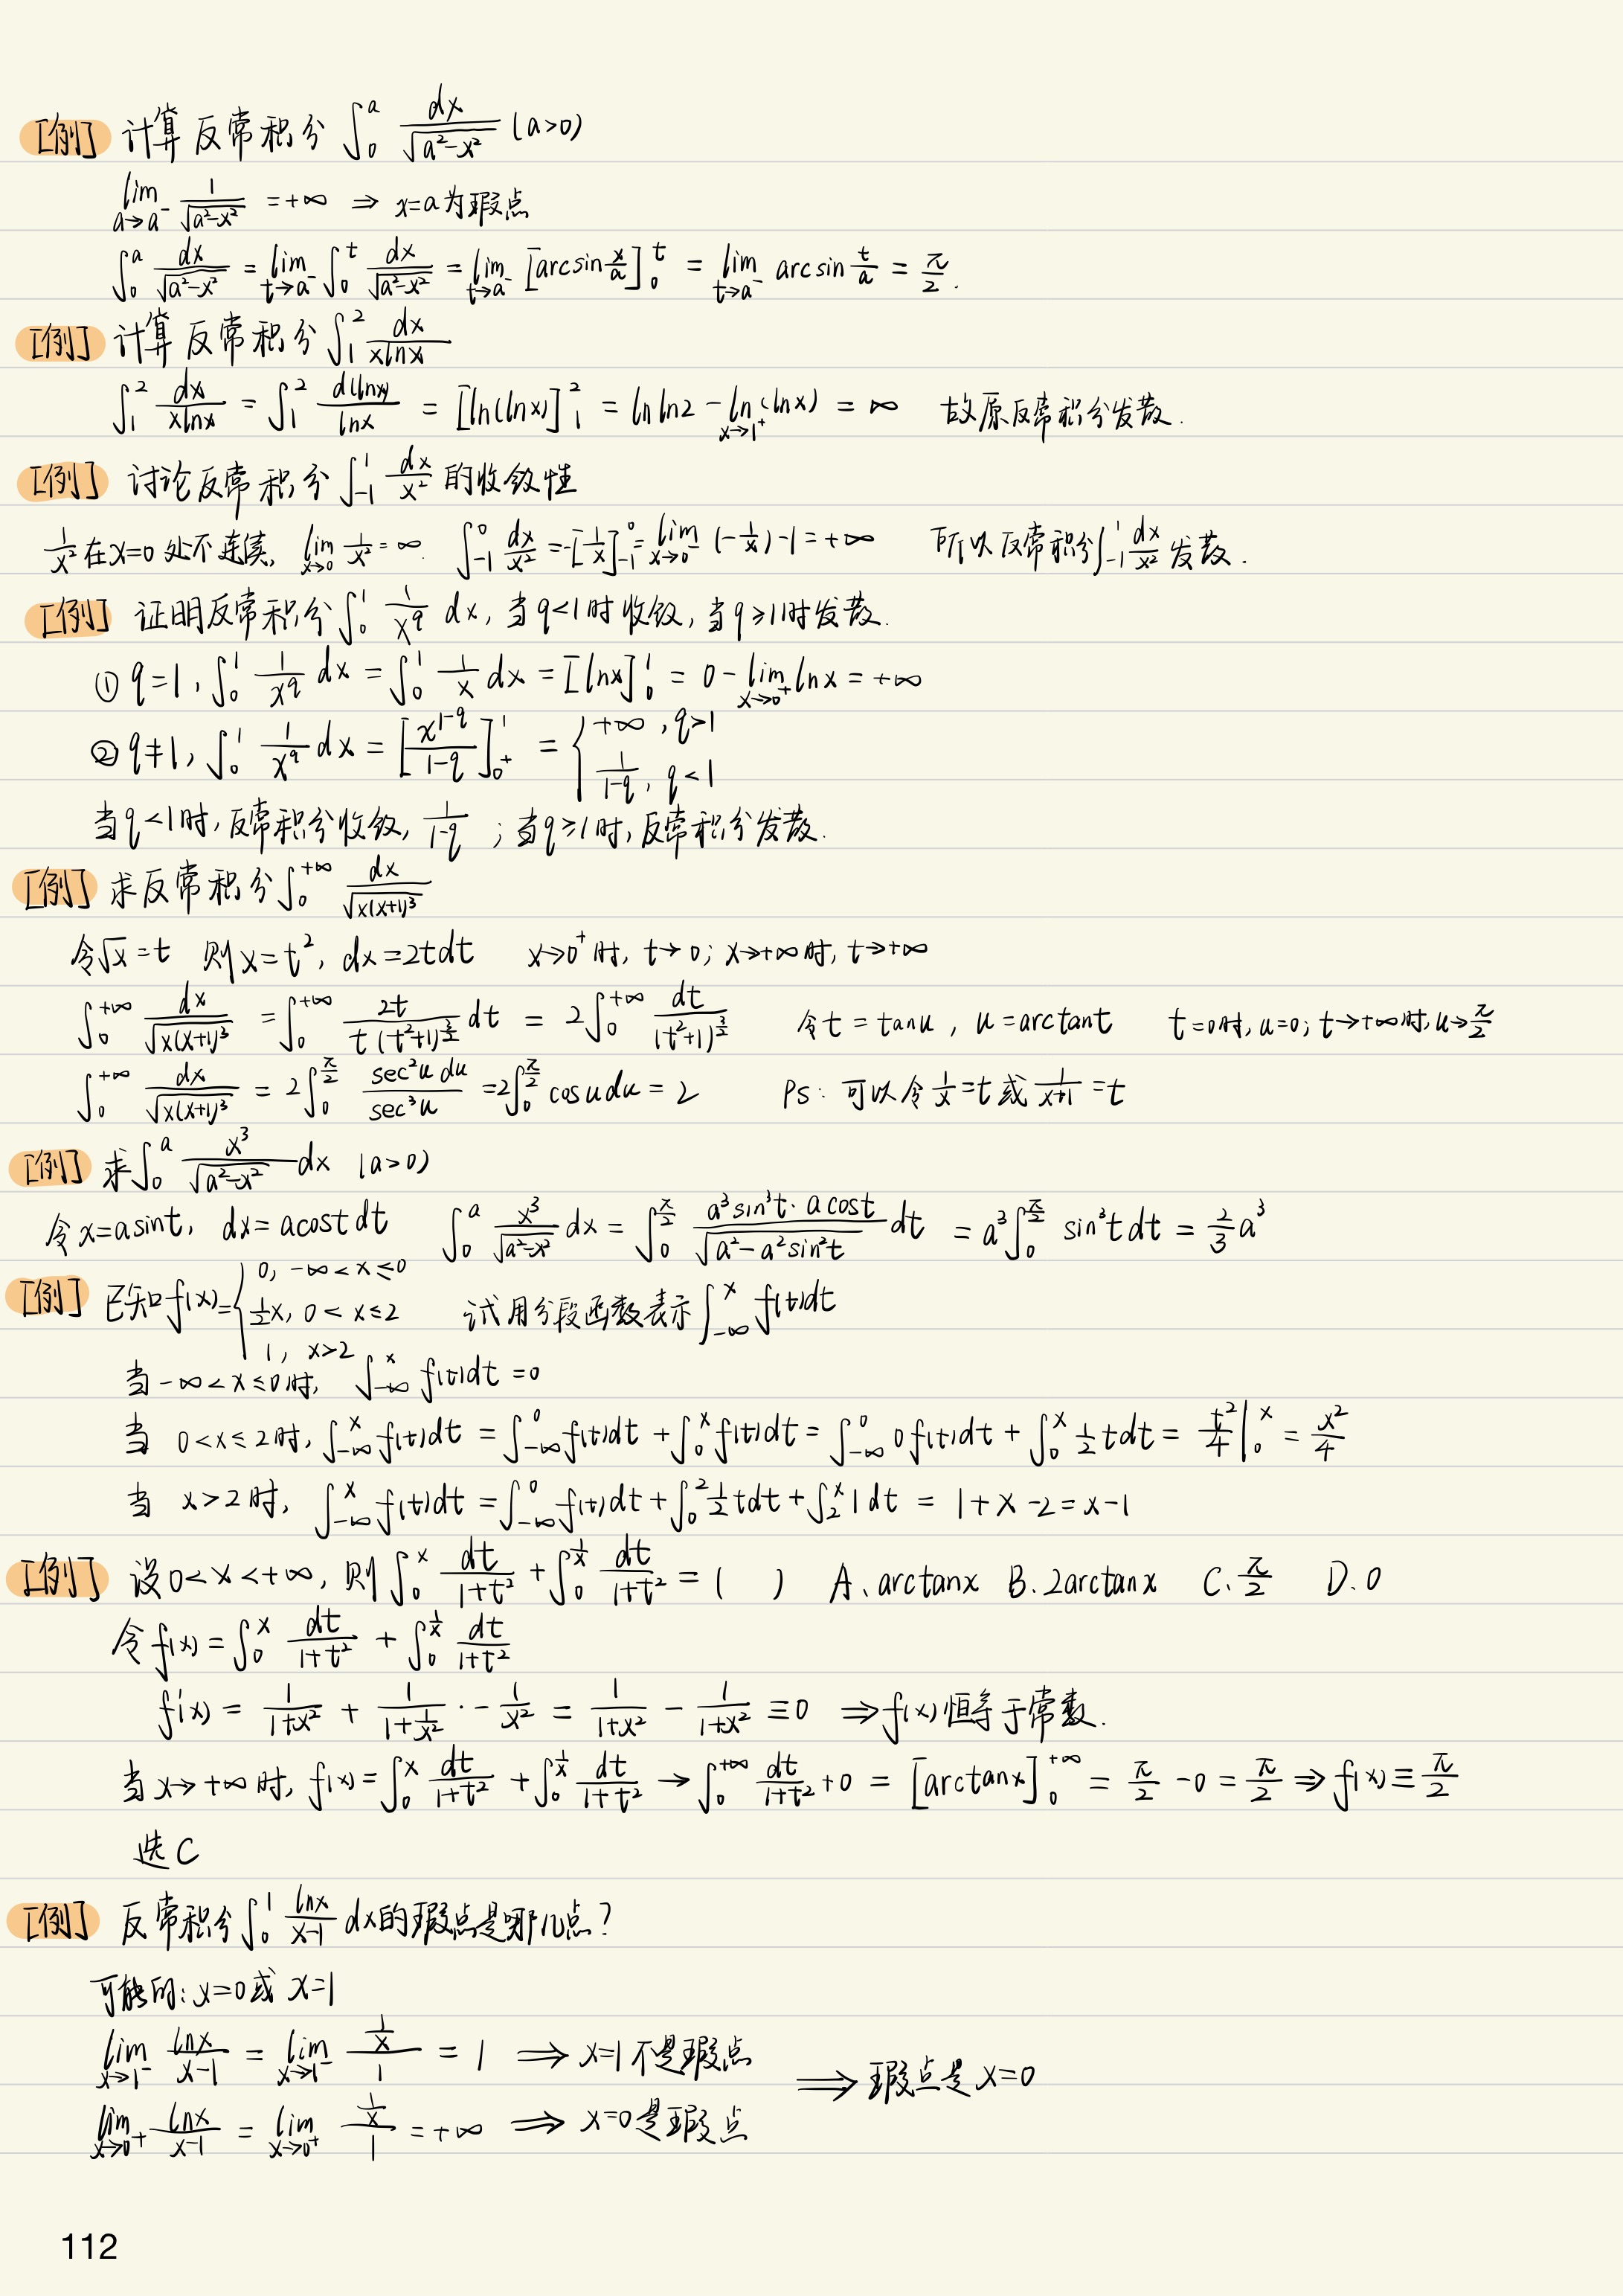 [例] 计算反常积分 ∫₀ᵃ dx/√(a²-x²) (a>0)
lim_{a→a⁻} 1/√(a²-x²) = +∞ ⇒ x=a为瑕点
∫₀ᵃ dx/√(a²-x²) = lim_{t→a⁻} ∫₀ᵗ dx/√(a²-x²) = lim_{t→a⁻} [arcsin x/a]₀ᵗ = lim_{t→a⁻} arcsin t/a = π/2.
[例] 计算反常积分 ∫₁² dx/(xlnx)
∫₁² dx/(xlnx) = ∫₁² d(lnx)/lnx = [ln(lnx)]₁² = lnln2 - ln_{x→1⁺}(lnx) = ∞ 故原反常积分发散.
[例] 讨论反常积分 ∫₋₁¹ dx/x² 的收敛性
1/x² 在x=0处不连续, lim_{x→0} 1/x² = ∞. ∫₋₁⁰ dx/x² = -[1/x]₋₁⁰ = lim_{x→0⁻} (-1/x) - 1 = +∞ 所以反常积分∫₋₁¹ dx/x² 发散.
[例] 证明反常积分 ∫₀¹ 1/x^q dx, 当q<1时收敛, 当q≥1时发散.
① q=1, ∫₀¹ 1/x^q dx = ∫₀¹ 1/x dx = [lnx]₀¹ = 0 - lim_{x→0⁺} lnx = +∞
② q≠1, ∫₀¹ 1/x^q dx = [x^(1-q)/(1-q)]_{0⁺}¹ = { +∞, q>1
1/(1-q), q<1
当q<1时, 反常积分收敛, 1/(1-q) ; 当q≥1时, 反常积分发散.
[例] 求反常积分 ∫₀^{+∞} dx/√(x(x+1)³)
令√x=t 则x=t², dx=2tdt x→0⁺时, t→0; x→+∞时, t→+∞
∫₀^{+∞} dx/√(x(x+1)³) = ∫₀^{+∞} 2t/(t(t²+1)^{3/2}) dt = 2∫₀^{+∞} dt/(t²+1)^{3/2} 令t=tanu, u=arctant t=0时, u=0; t→+∞时, u→π/2
∫₀^{+∞} dx/√(x(x+1)³) = 2∫₀^{π/2} sec²u du/sec³u = 2∫₀^{π/2} cosudu = 2 PS: 可以令 1/x=t 或 1/(x+1)=t
[例] 求∫₀ᵃ x³/√(a²-x²) dx (a>0)
令x=asint, dx=acostdt ∫₀ᵃ x³/√(a²-x²) dx = ∫₀^{π/2} a³sin³t·acost/√(a²-a²sin²t) dt = a³∫₀^{π/2} sin³tdt = 2/3 a³
[例] 已知f(x)={ 0, -∞<x≤0
1/2x, 0<x≤2 试用分段函数表示∫_{-∞}^x f(t)dt
1, x>2
当-∞<x≤0时, ∫_{-∞}^x f(t)dt=0
当 0<x≤2时, ∫_{-∞}^x f(t)dt = ∫_{-∞}^0 f(t)dt + ∫₀ˣ f(t)dt = ∫_{-∞}^0 0f(t)dt + ∫₀ˣ 1/2 tdt = t²/4|₀ˣ = x²/4
当 x>2时, ∫_{-∞}^x f(t)dt = ∫_{-∞}^0 f(t)dt + ∫₀² 1/2 tdt + ∫₂ˣ 1dt = 1+x-2 = x-1
[例] 设0<x<+∞, 则∫₀ˣ dt/(1+t²) + ∫₀^{1/x} dt/(1+t²) = ( ) A. arctanx B. 2arctanx C. π/2 D. 0
令f(x) = ∫₀ˣ dt/(1+t²) + ∫₀^{1/x} dt/(1+t²)
f'(x) = 1/(1+x²) + 1/(1+1/x²) · -1/x² = 1/(1+x²) - 1/(1+x²) ≡ 0 ⇒ f(x)恒等于常数.
当x→+∞时, f(x) = ∫₀ˣ dt/(1+t²) + ∫₀^{1/x} dt/(1+t²) → ∫₀^{+∞} dt/(1+t²) + 0 = [arctanx]₀^{+∞} = π/2 - 0 = π/2 ⇒ f(x) ≡ π/2
选C
[例] 反常积分∫₀¹ lnx/(x-1) dx的瑕点是哪几点?
可能的: x=0或x=1
lim_{x→1⁻} lnx/(x-1) = lim_{x→1⁻} (1/x)/1 = 1 ⇒ x=1不是瑕点
⇒ 瑕点是x=0
lim_{x→0⁺} lnx/(x-1) = lim_{x→0⁺} (1/x)/1 = +∞ ⇒ x=0是瑕点
112